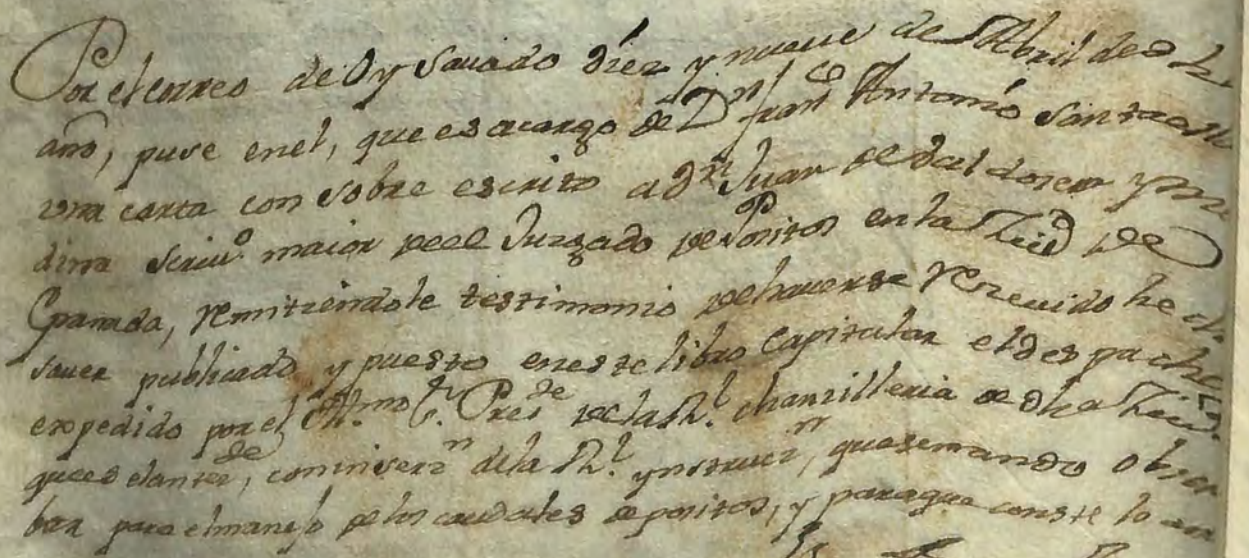 Por el correo de oy savado diez y nueve de Abril de dho
año, puse en el, que es a cargo de Dn franco Antonio Santaella
una carta con sobre escrito a dn Juan de Baldores y Me
dina scrivo maior de el Juzgado de Positos en la Ziud de
Granada, remitiendole testimonio de haverse recevido hecho
saver publicado y puesto en este libro Capitular el despacho
expedido por el Illmo Sr Preste de la Rl chanzilleria de dha Ziud.
que es el antezte, con inserzn de la Rl ynstruczn, que se mando obser
bar para el manejo de los caudales de positos, y para que conste lo an